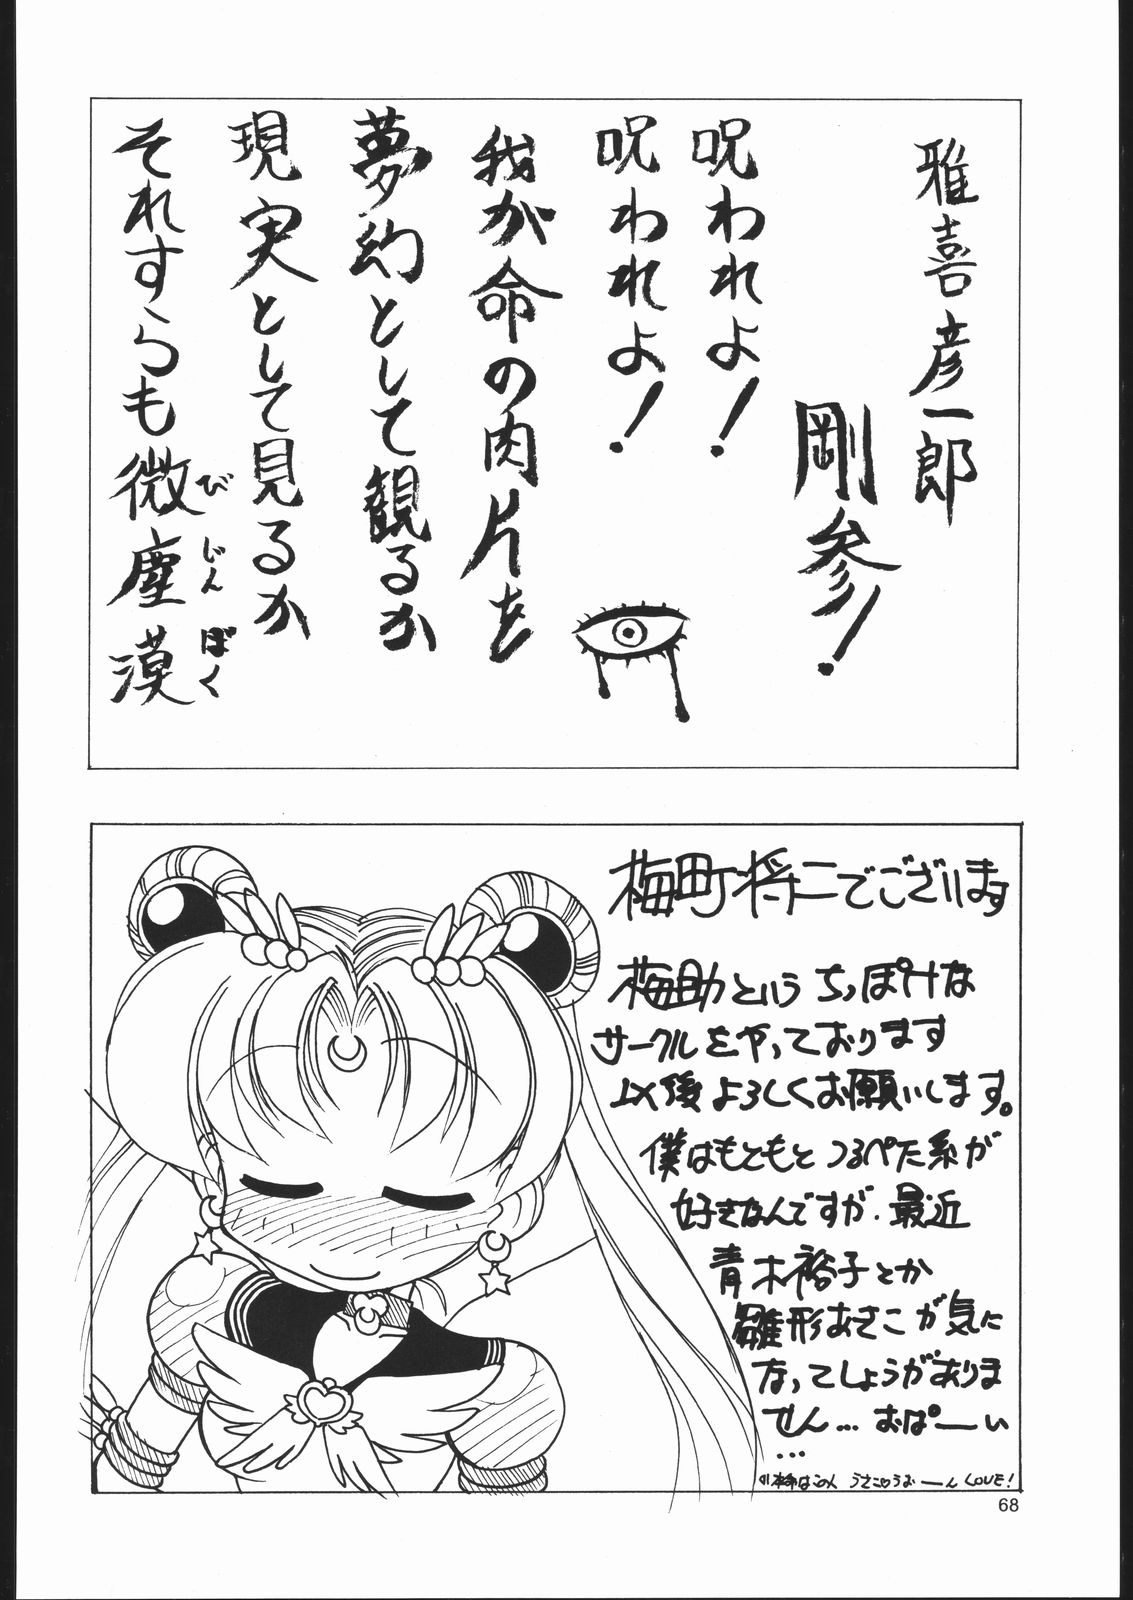 雅喜彦一郎
剛参!
呪われよ!
呪われよ!
我が命の肉片を
夢幻として観るか
現実として見るか
それすらも微塵漠
びじんぼく
梅町将二でございます
梅助というちっぽけな
サークルをやっております
以後よろしくお願いします。
僕はもともとつるぺた系が
好きなんですが、最近
青木裕子とか
雛形あきこが気に
なってしょうがありま
せん…おぱーい
…
LOVE!
68